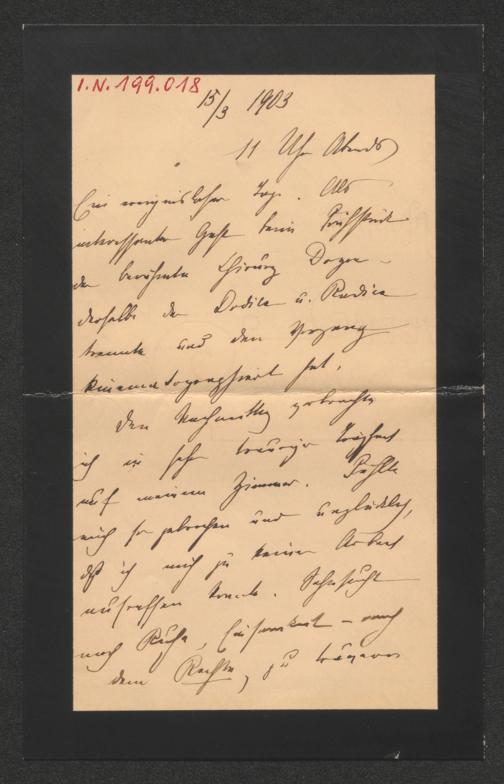 I.N. 199.018
15/3 1903
11 Uhr Abends
Ein ereignisloser Tag. Als
interessanter Gast beim Frühstück
der berühmte Chirurg Doyen –
derselbe der Dodica u. Radica
trennte und den Vorgang
kinematographiert hat.
Den Nachmittag verbrachte
ich in sehr trauriger
auf meinem Zimmer. Fühlte
mich so gebrochen und unglücklich,
daß ich mich zu keiner Arbeit
aufraffen konnte. Sehnsucht
nach Ruhe, Einsamkeit – nach
dem Rechte, zu trauern